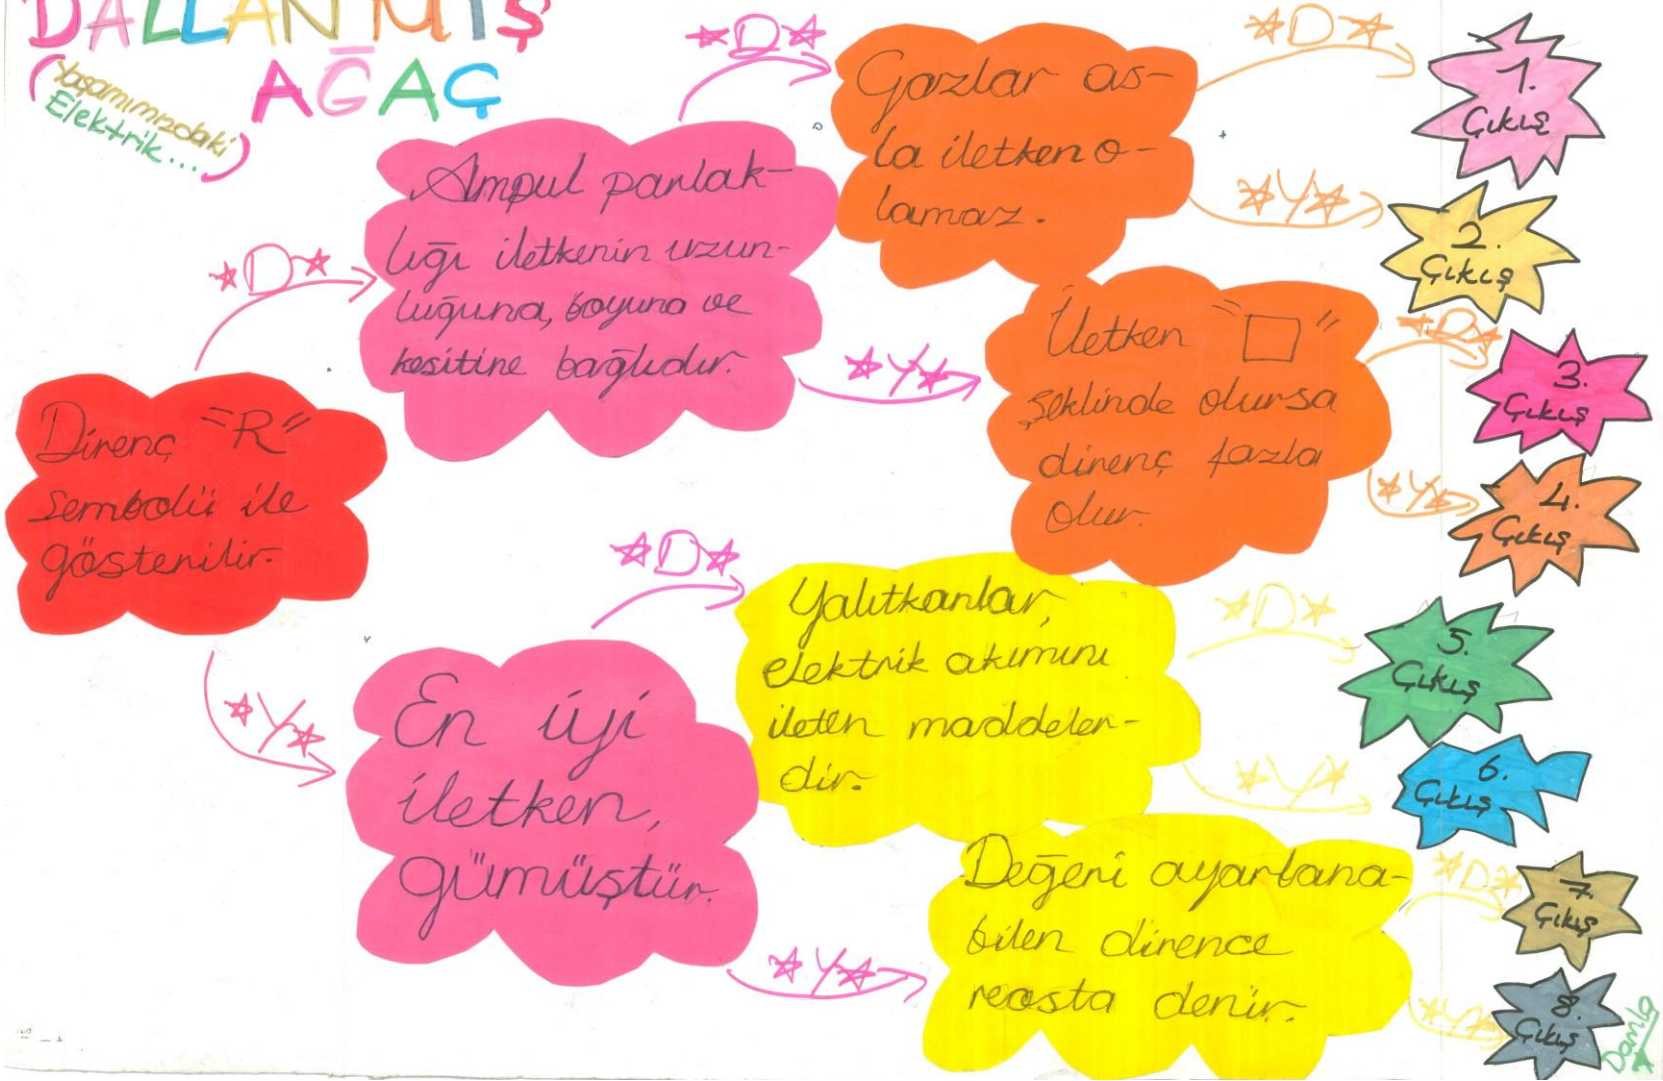 DALLANMIŞ
AĞAÇ
(Yaşamımızdaki
Elektrik...)
Direnç "R"
sembolü ile
gösterilir.
D
Y
Ampul parlak-
lığı iletkenin uzun-
luğuna, boyuna ve
kesitine bağlıdır.
D
Y
En iyi
iletken,
gümüştür.
D
Y
Gazlar as-
la iletken o-
lamaz.
D
Y
İletken "□"
şeklinde olursa
direnç fazla
olur.
D
Y
Yalıtkanlar,
elektrik akımını
ileten maddeler-
dir.
D
Y
Değeri ayarlana-
bilen dirence
reosta denir.
D
Y
1.
Çıkış
2.
Çıkış
3.
Çıkış
4.
Çıkış
5.
Çıkış
6.
Çıkış
7.
Çıkış
8.
Çıkış
Damla